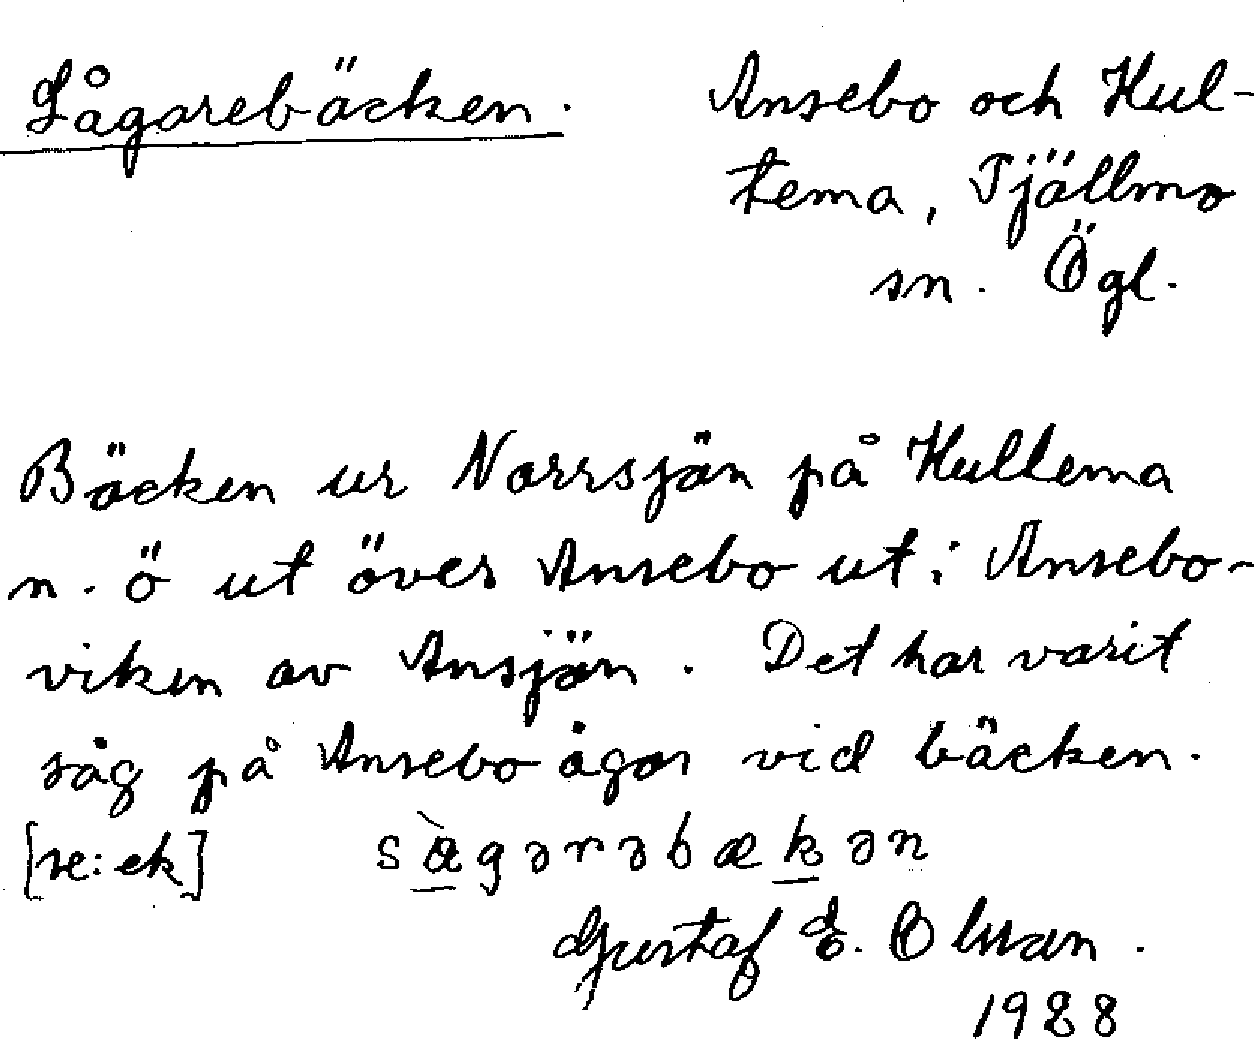 Sågarebäcken. Ansebo och Hul-
tema, Tjällmo
sn. Ögl.
Bäcken ur Norrsjön på Hultema
n. ö ut över Ansebo ut i Ansebo-
viken av Ansjön. Det har varit
såg på Ansebo ägor vid bäcken.
[se: ek] sàgərəbækən
Gustaf E. Olsson.
1928